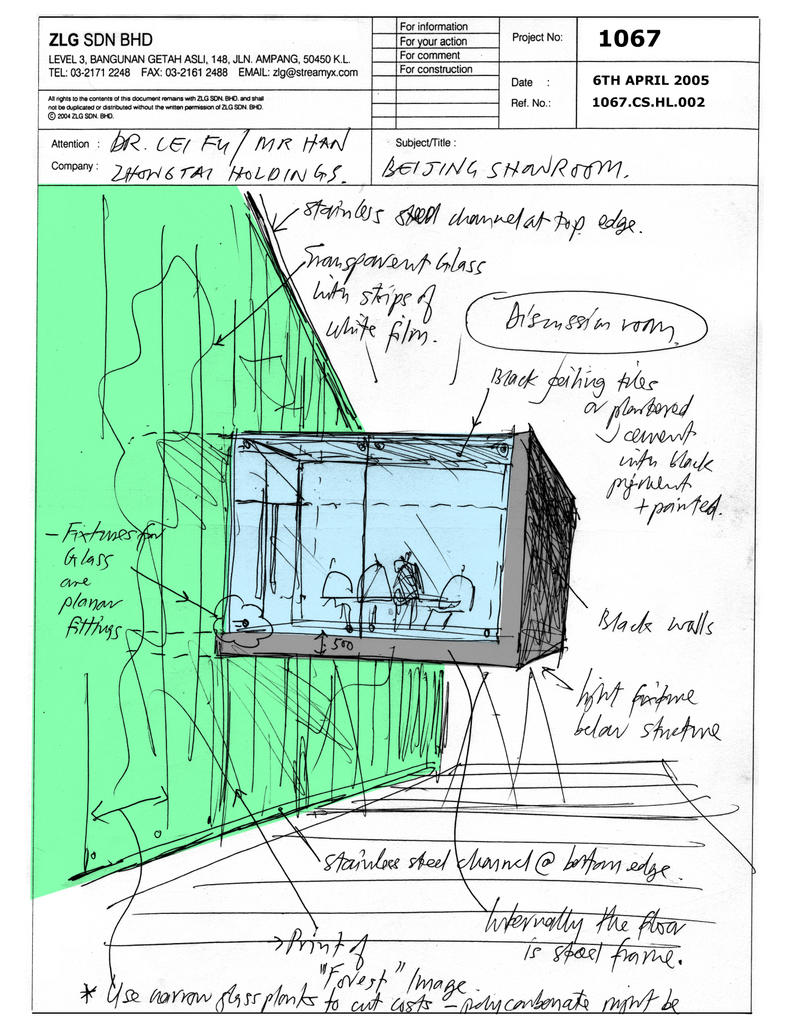 ZLG SDN BHD
LEVEL 3, BANGUNAN GETAH ASLI, 148, JLN. AMPANG, 50450 K.L.
TEL: 03-2171 2248 FAX: 03-2161 2488 EMAIL: zlg@streamyx.com
All rights to the contents of this document remains with ZLG SDN. BHD. and shall
not be duplicated or distributed without the written permission of ZLG SDN. BHD.
© 2004 ZLG SDN. BHD.
For information
For your action
For comment
For construction
Project No: 1067
Date : 6TH APRIL 2005
Ref. No.: 1067.CS.HL.002
Attention : DR. LEI FU / MR HAN
Company : ZHONGTAI HOLDINGS.
Subject/Title :
BEIJING SHOWROOM.
Stainless steel channel at top edge.
Transparent Glass
with strips of
white film.
Discussion room.
Black ceiling tiles
or plastered
cement
with black
pigment
+ painted.
- Fixtures for
Glass
are
planar
fittings
500
Black walls
light fixture
below structure
stainless steel channel @ bottom edge.
Internally the floor
is steel frame.
→ Print of
"Forest" Image.
* Use narrow glass planks to cut costs - polycarbonate might be